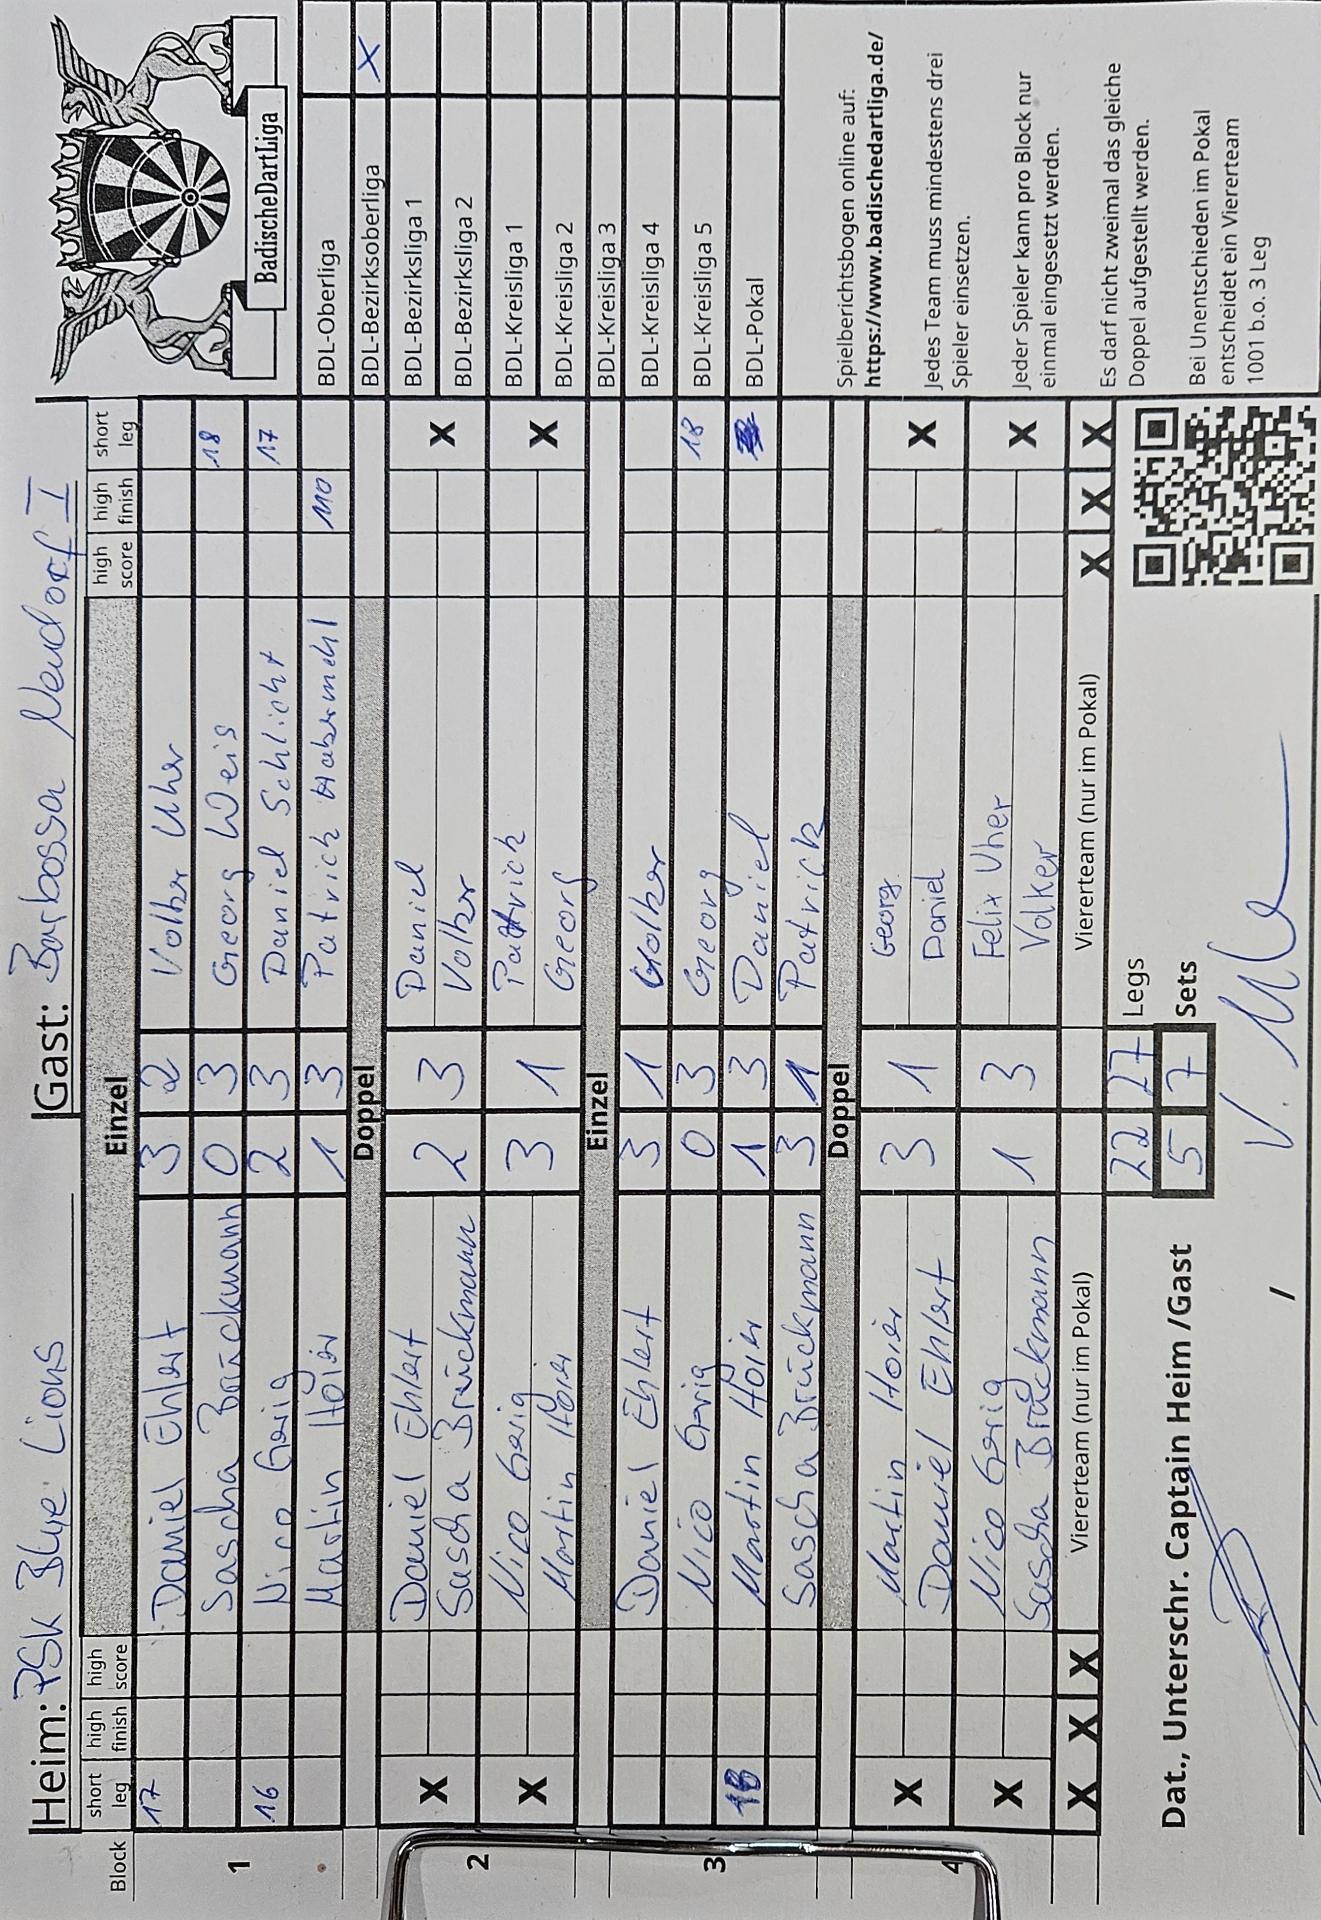 Heim: PSK Blue Lions Gast: Barbossa Neudorf I
BadischeDartLiga
Block short leg high finish high score Einzel high score high finish short leg
1
17 Daniel Ehlert 3 2 Volker Uher
Sascha Brückmann 0 3 Georg Weis 18
16 Nico Gerig 2 3 Daniel Schlicht 17
Martin Hoier 1 3 Patrick Habermehl 110
Doppel
2
X Daniel Ehlert 2 3 Daniel X
Sascha Brückmann Volker
X Nico Gerig 3 1 Patrick X
Martin Hoier Georg
Einzel
3
Daniel Ehlert 3 1 Volker
Nico Gerig 0 3 Georg 18
18 Martin Hoier 1 3 Daniel
Sascha Brückmann 3 1 Patrick
Doppel
4
X Martin Hoier 3 1 Georg X
Daniel Ehlert Daniel
X Nico Gerig 1 3 Felix Uher X
Sascha Brückmann Volker
X X X Viererteam (nur im Pokal) Viererteam (nur im Pokal) X X X
22 27 Legs
5 7 Sets
Dat., Unterschr. Captain Heim /Gast
BDL-Oberliga
BDL-Bezirksoberliga X
BDL-Bezirksliga 1
BDL-Bezirksliga 2
BDL-Kreisliga 1
BDL-Kreisliga 2
BDL-Kreisliga 3
BDL-Kreisliga 4
BDL-Kreisliga 5
BDL-Pokal
Spielberichtsbogen online auf:
https://www.badischedartliga.de/
Jedes Team muss mindestens drei
Spieler einsetzen.
Jeder Spieler kann pro Block nur
einmal eingesetzt werden.
Es darf nicht zweimal das gleiche
Doppel aufgestellt werden.
Bei Unentschieden im Pokal
entscheidet ein Viererteam
1001 b.o. 3 Leg